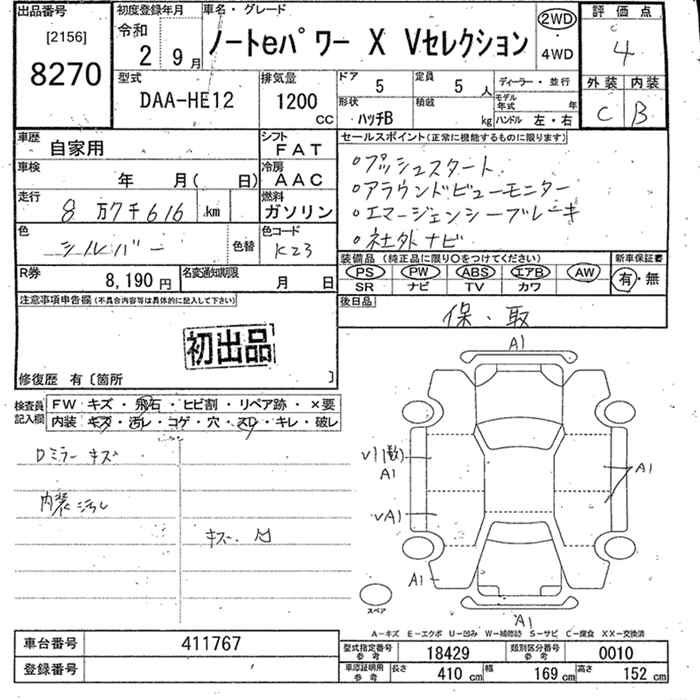 出品番号 初度登録年月 車名・グレード 評価点
[2156] 令和 ノートeパワー X Vセレクション 2WD・4WD 4
8270 2年 9月
型式 排気量 ドア 5 定員 5人 ディーラー・並行 外装 内装
DAA-HE12 1200cc 形状 ハッチB 積載 kg モデル年式 年 ハンドル 左・右 C B
車歴 自家用 シフト FAT セールスポイント(正常に機能するものに限ります)
車検 年 月( 日) 冷房 AAC ○プッシュスタート
○アラウンドビューモニター
走行 8万7千616km 燃料 ガソリン ○エマージェンシーブレーキ
色 シルバー 色替 色コード K23 ○社外ナビ
装備品(純正品に限り○をつけてください) 新車保証書
R券 8,190円 名変通知期限 月 日 PS PW ABS エアB AW 有・無
SR ナビ TV カワ
注意事項申告欄(不具合内容等は具体的に記入して下さい) 後日品
保・取
初出品
修復歴 有〔箇所 〕
検査員記入欄 FW キズ・飛石・ヒビ割・リペア跡・×要
内装 キズ・汚レ・コゲ・穴・スレ・キレ・破レ
A1
Dミラーキズ
V1(数)
A1 A1
内装汚れ
VA1
キズ・凹
A1
スペア
A1
A-キズ E-エクボ U-凹み W-補修跡 S-サビ C-腐食 XX-交換済
車台番号 411767 型式指定番号 参考 18429 類別区分番号 参考 0010
登録番号 車庫証明用 参考 長さ 410cm 幅 169cm 高さ 152cm